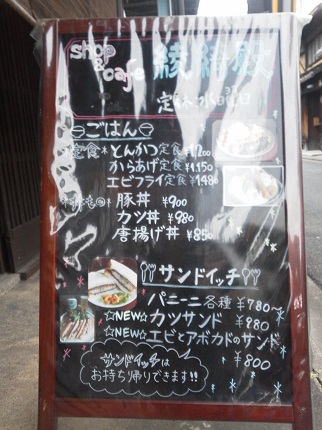 shop & cafe 綾綺殿
定休 水曜日
ごはん
定食 とんかつ定食 ¥1,200
からあげ定食 ¥1,150
エビフライ定食 ¥1,480
豚丼 ¥900
カツ丼 ¥980
唐揚げ丼 ¥850
サンドイッチ
パニーニ各種 ¥780~
☆NEW☆ カツサンド ¥980
☆NEW☆ エビとアボカドのサンド
¥800
サンドイッチは
お持ち帰りできます!!